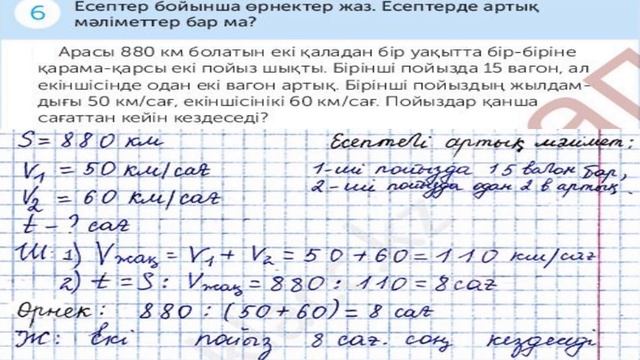 6 Есептер бойынша өрнектер жаз. Есептерде артық
мәліметтер бар ма?
Арасы 880 км болатын екі қаладан бір уақытта бір-біріне
қарама-қарсы екі пойыз шықты. Бірінші пойызда 15 вагон, ал
екіншісінде одан екі вагон артық. Бірінші пойыздың жылдам-
дығы 50 км/сағ, екіншісінікі 60 км/сағ. Пойыздар қанша
сағаттан кейін кездеседі?
S = 880 км Есептегі артық мәлімет:
V₁ = 50 км/сағ 1-ші пойызда 15 вагон бар,
V₂ = 60 км/сағ 2-ші пойызда одан 2 в артық.
t - ? сағ
Ш: 1) Vжақ = V₁ + V₂ = 50 + 60 = 110 км/сағ
2) t = S : Vжақ = 880 : 110 = 8 сағ
Өрнек: 880 : (50 + 60) = 8 сағ
Ж: Екі пойыз 8 сағ. соң кездеседі